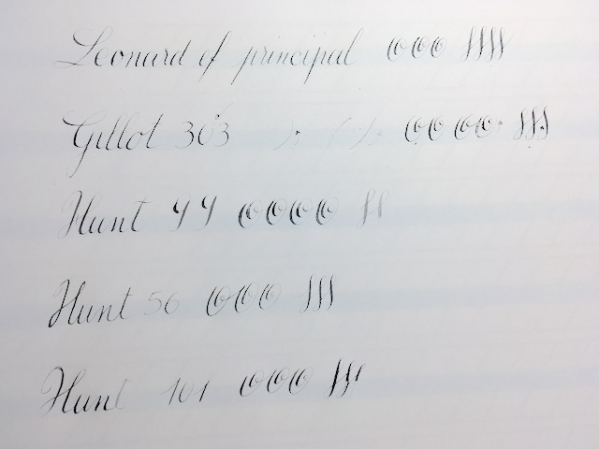 Leonard of principal
Gillot 303
Hunt 99
Hunt 56
Hunt 101